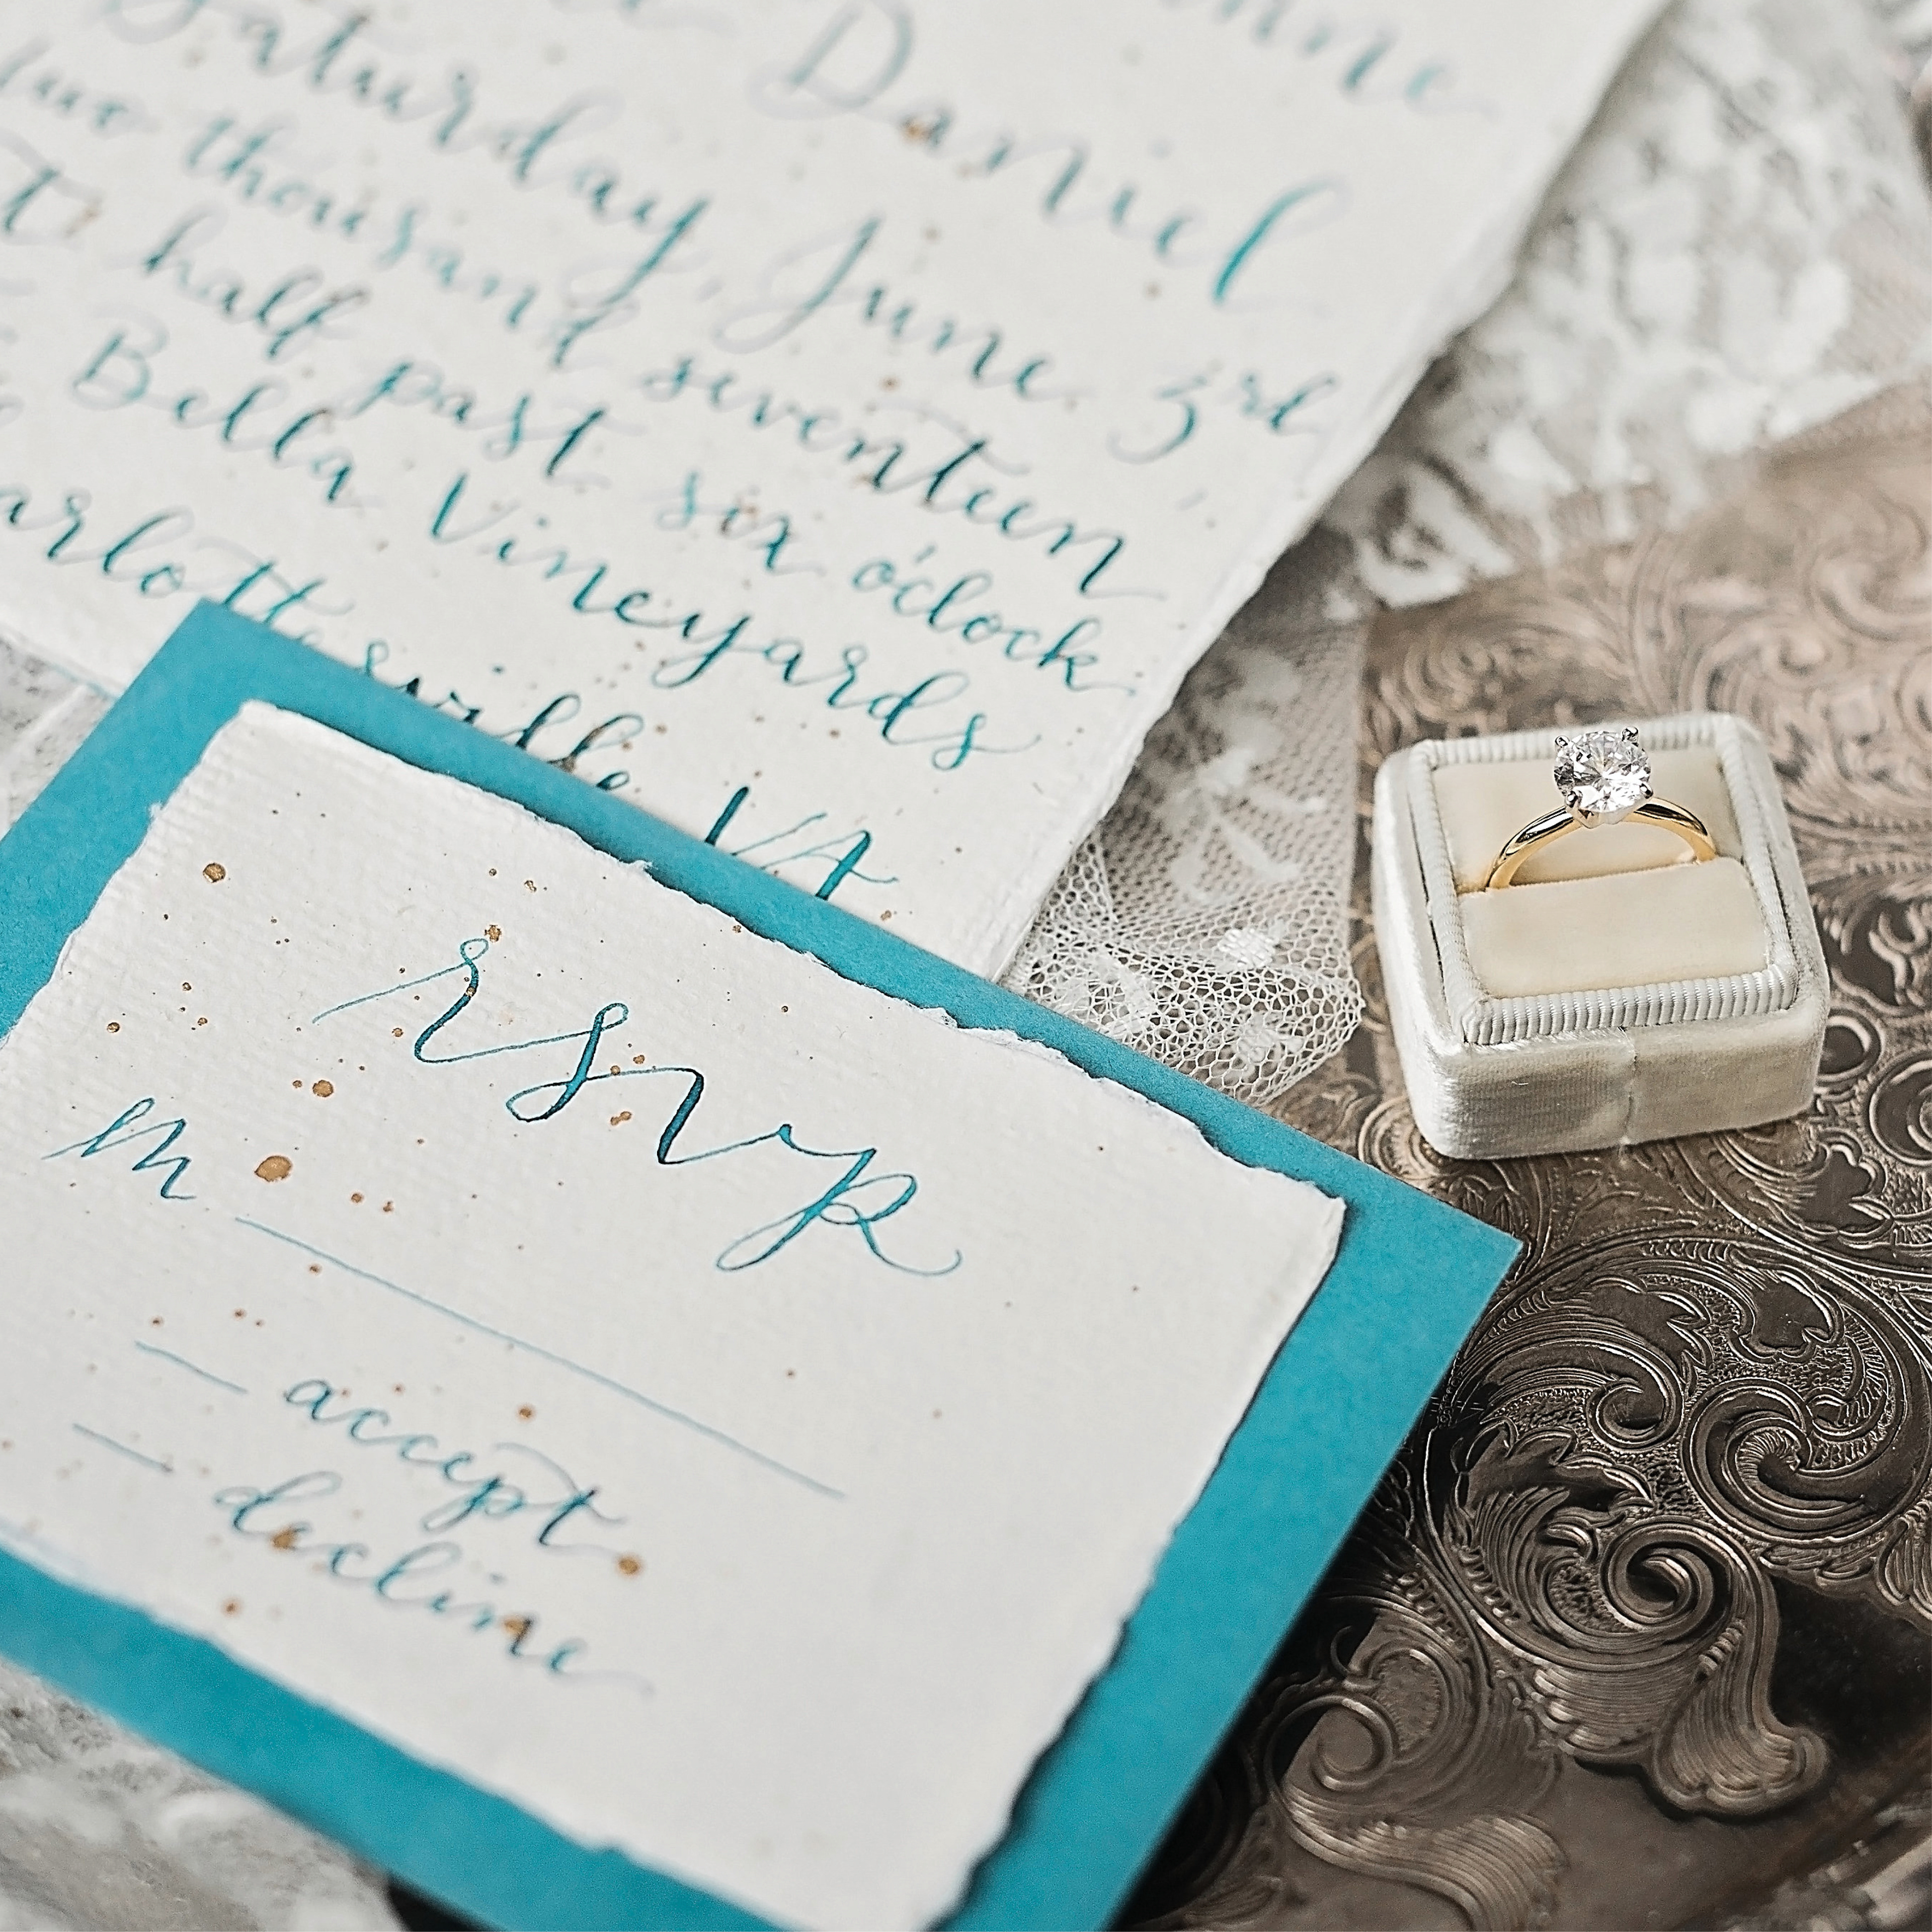 Daniel
Saturday, June 3rd,
two thousand seventeen
at half past six o'clock
Bella Vineyards
Charlottesville VA
rsvp
m
accept
decline